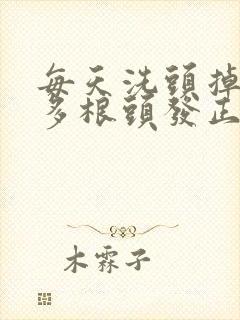 每天洗頭掉
多根頭發正
木霖子